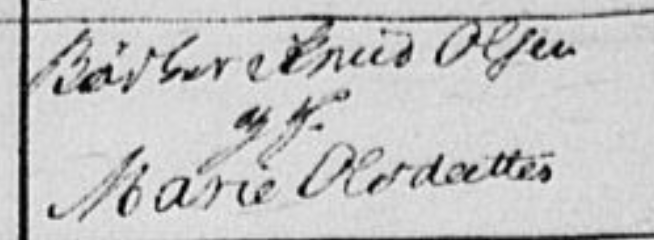 Bödker Knud Olsen
og H.
Marie Olsdatter